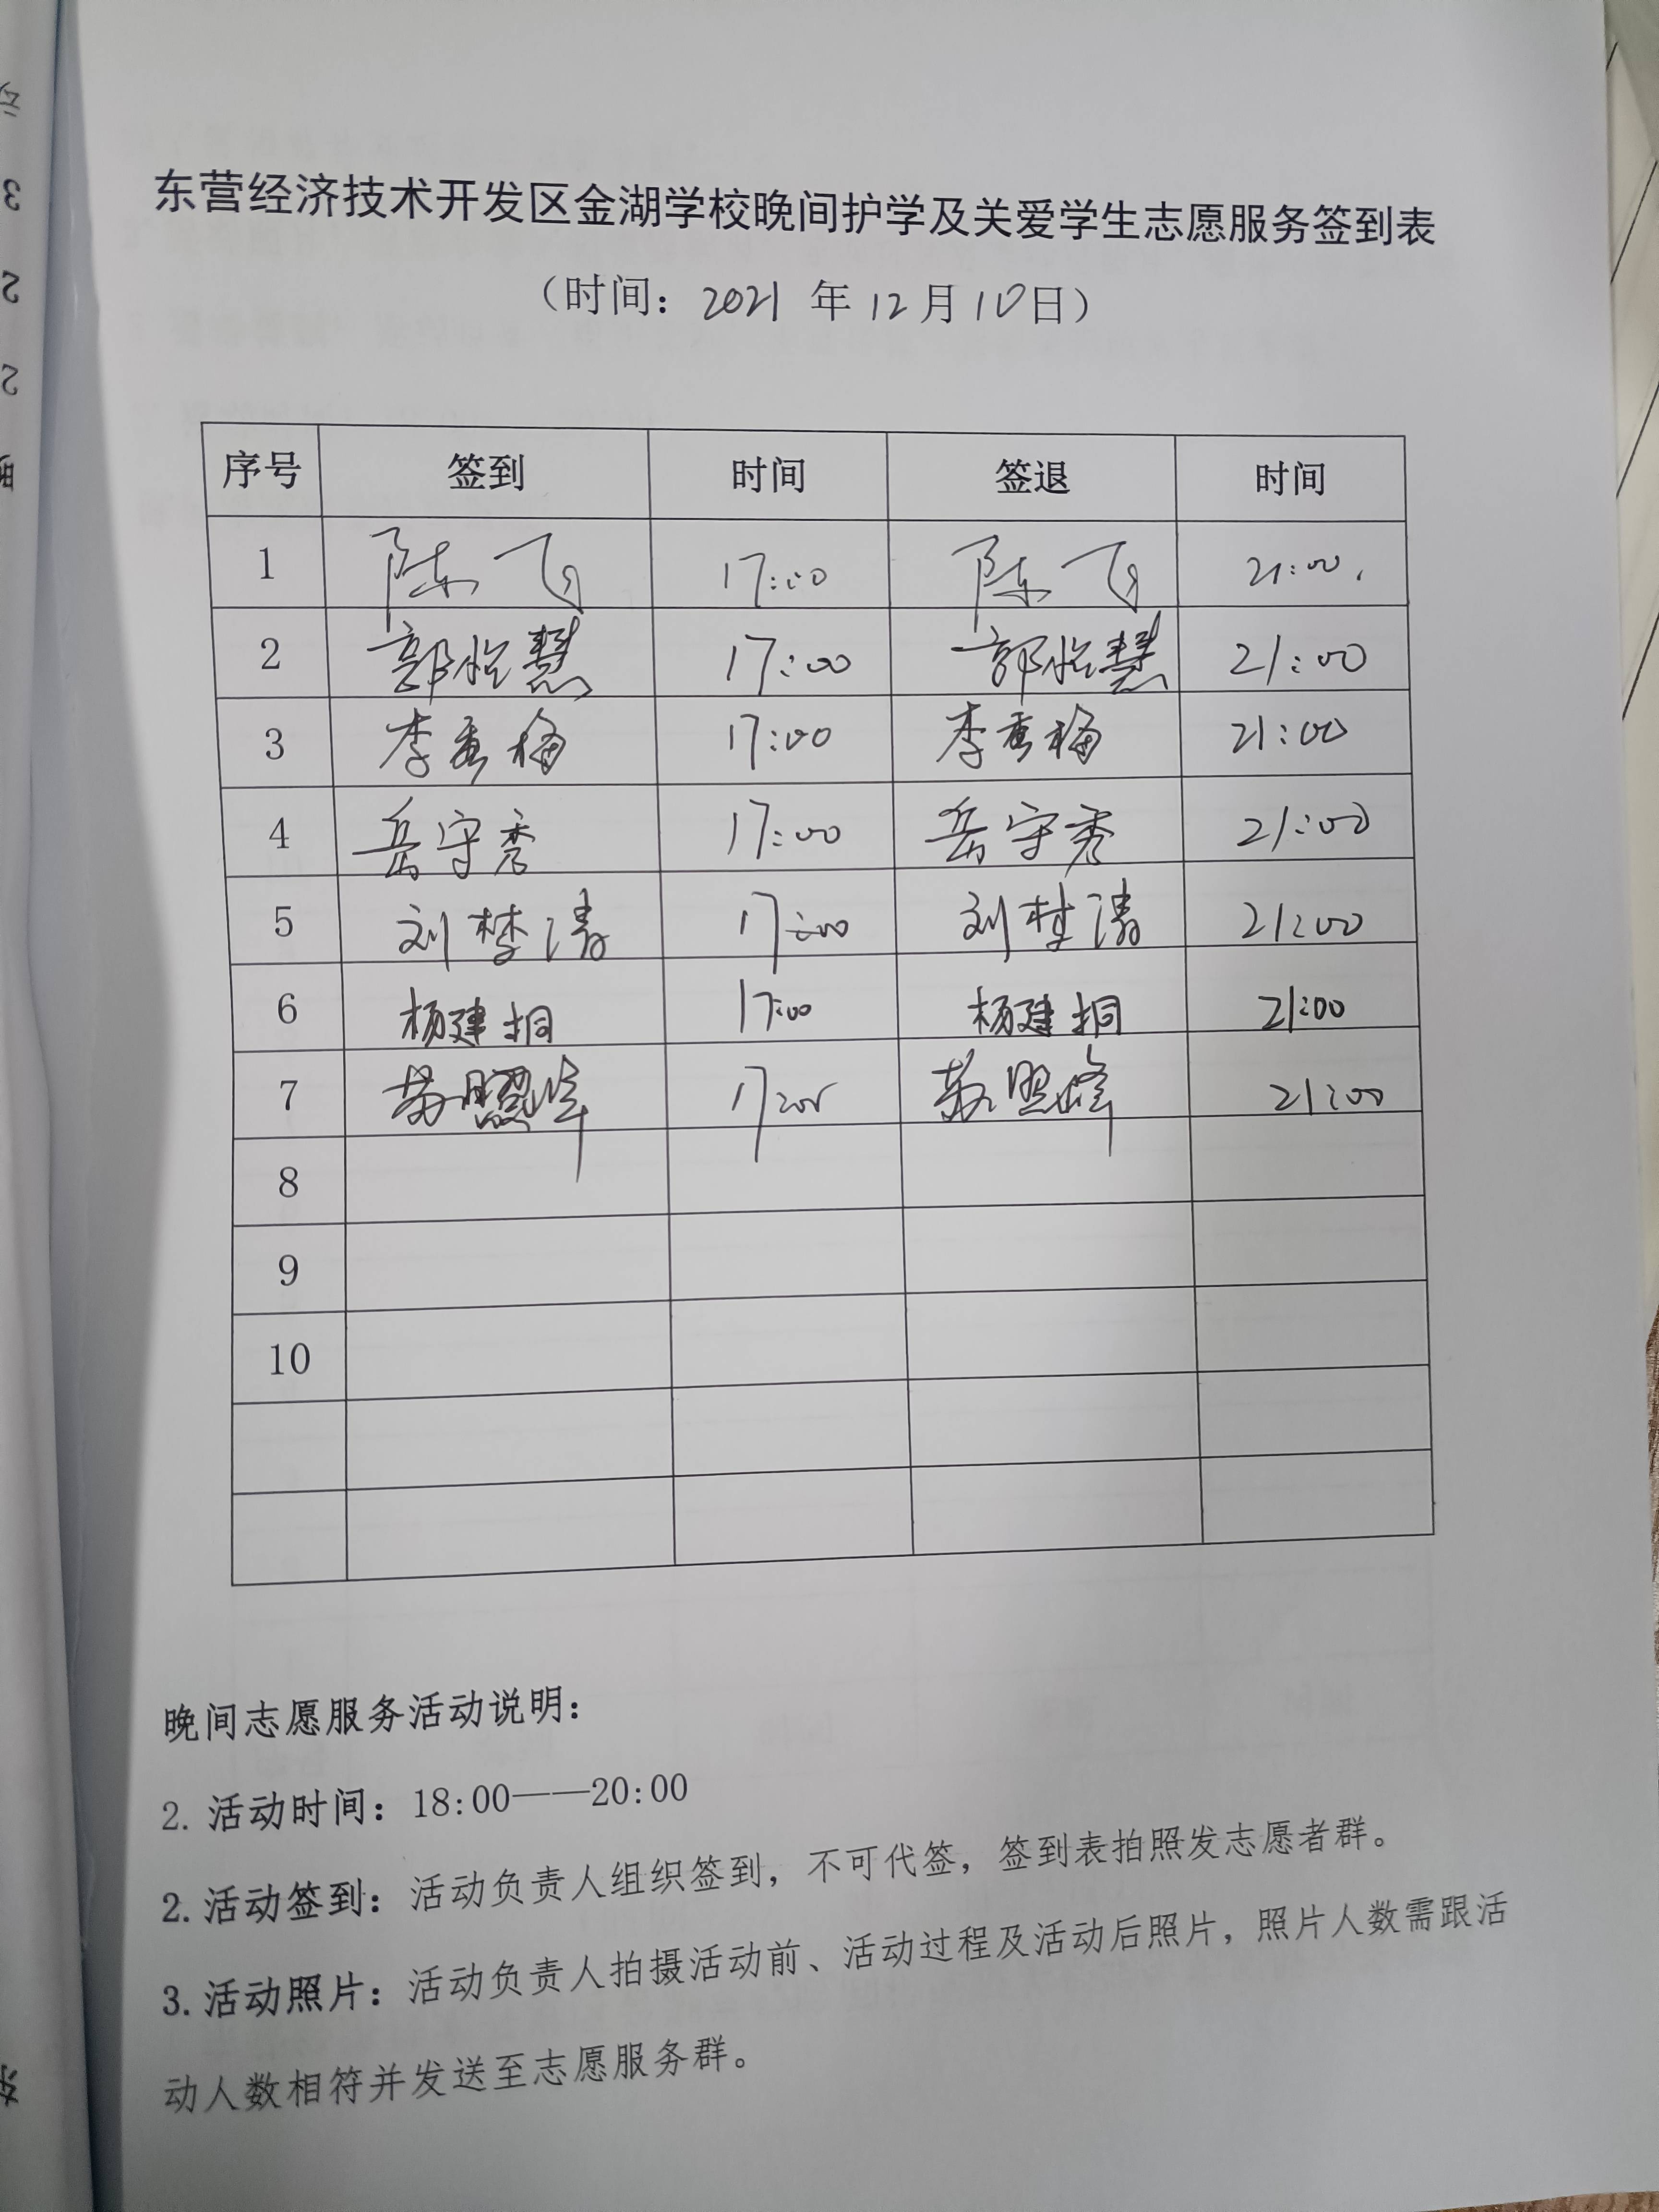 东营经济技术开发区金湖学校晚间护学及关爱学生志愿服务签到表
（时间：2021 年 12 月 10 日）
序号 签到 时间 签退 时间
1 陈飞 17:00 陈飞 21:00.
2 郭怡慧 17:00 郭怡慧 21:00
3 李秀梅 17:00 李秀梅 21:00
4 岳守秀 17:00 岳守秀 21:00
5 刘梦涛 17:00 刘梦涛 21:00
6 杨建桐 17:00 杨建桐 21:00
7 苏照峰 17:00 苏照峰 21:00
8
9
10
晚间志愿服务活动说明：
2. 活动时间：18:00——20:00
2. 活动签到：活动负责人组织签到，不可代签，签到表拍照发志愿者群。
3. 活动照片：活动负责人拍摄活动前、活动过程及活动后照片，照片人数需跟活
动人数相符并发送至志愿服务群。